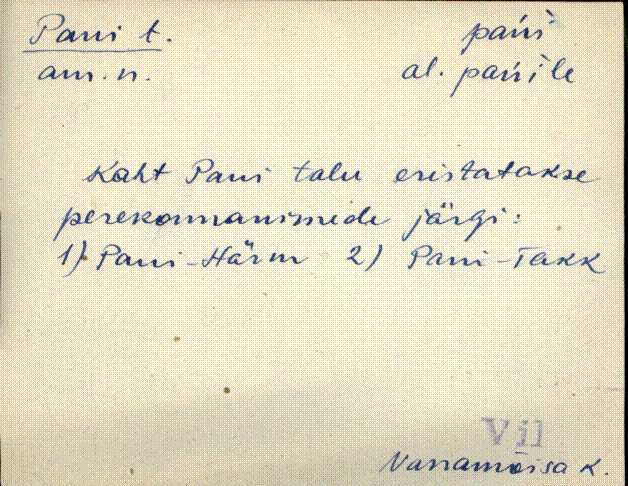 Pani t. pańi
am. n. al. pańile
Kaht Pani talu eristatakse
perekonnanimede järgi:
1) Pani-Härm 2) Pani-Takk
Vil
Vanamõisa k.